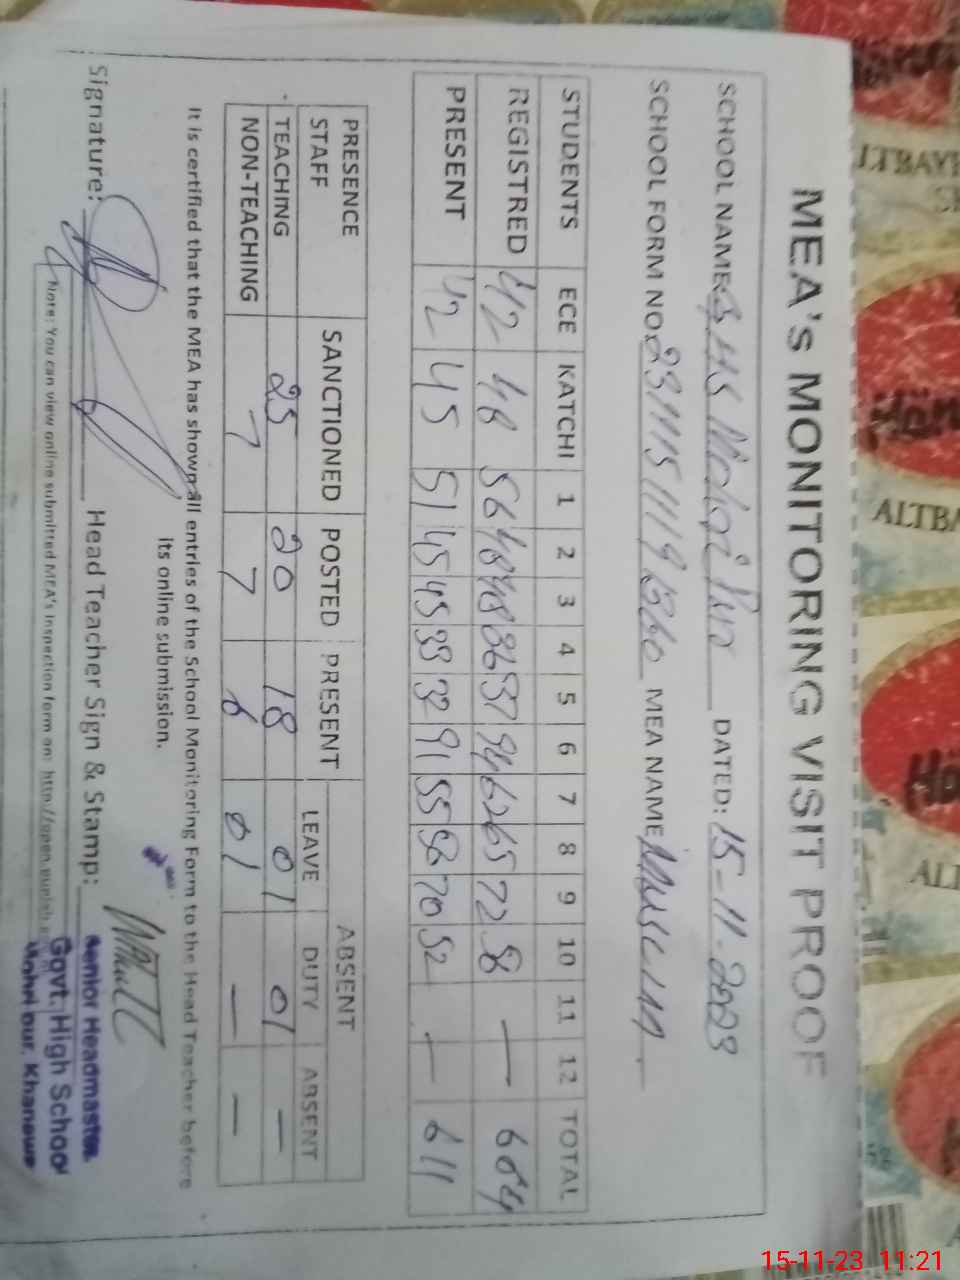 MEA's MONITORING VISIT PROOF
SCHOOL NAME: GHS DATED: 15-11-2023
SCHOOL FORM NO: MEA NAME:
STUDENTS ECE KATCHI 1 2 3 4 5 6 7 8 9 10 11 12 TOTAL
REGISTRED 42 48 56 48 48 36 37 94 62 65 72 58 — 664
PRESENT 42 45 51 45 45 33 32 91 55 56 70 52 — 611
PRESENCE STAFF SANCTIONED POSTED PRESENT ABSENT
LEAVE DUTY ABSENT
TEACHING 25 20 18 01 01 —
NON-TEACHING 7 7 6 01 — —
It is certified that the MEA has shown all entries of the School Monitoring Form to the Head Teacher before
its online submission.
Signature: Head Teacher Sign & Stamp:
Senior Headmaster
Govt. High School
Mohri Pur, Khanewal
Note: You can view online submitted MEA's Inspection form on: http://open.punjab
LTBAY
ALTBA
15-11-23 11:21